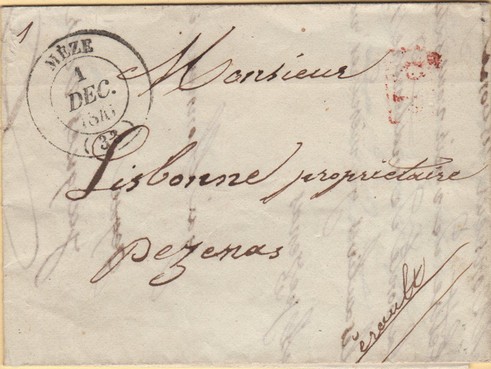 1
MÈZE
1
DEC.
33
Monsieur
Lisbonne propriétaire
Pezenas
érault